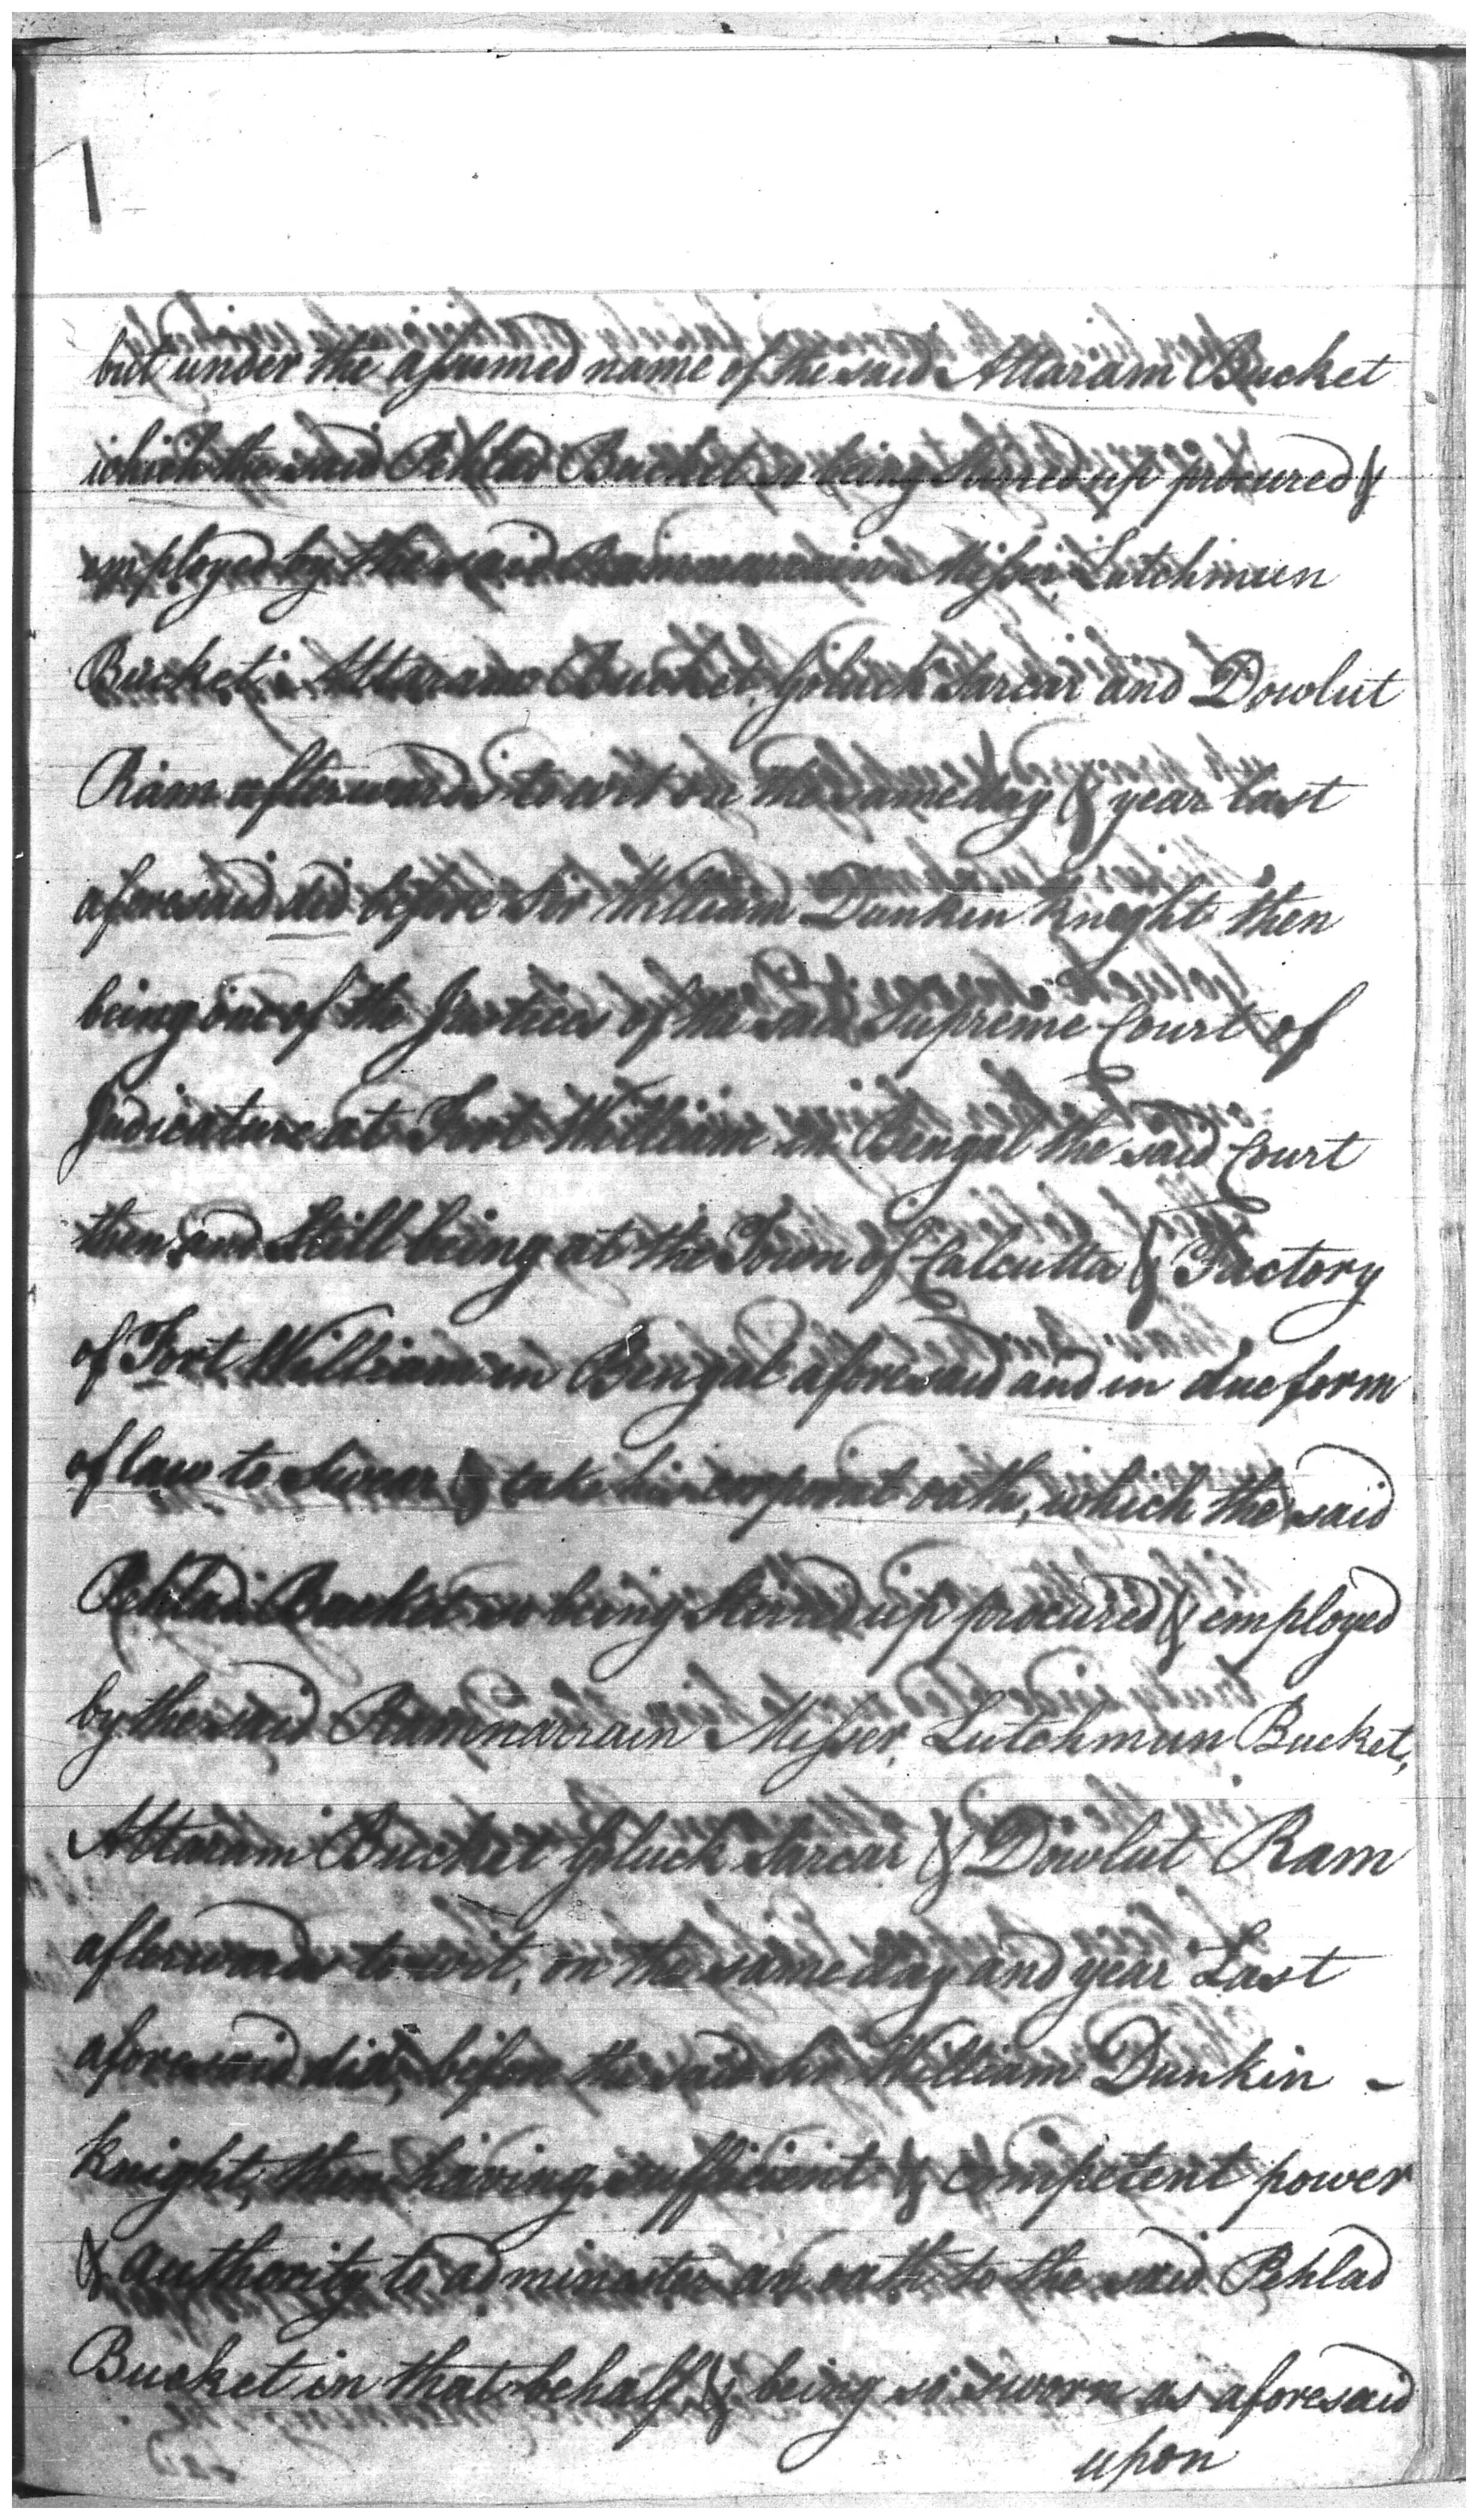 but under the assumed name of the said Attaram Bucket
which the said Pehlad Bucket so being stirred up procured &
employed by the said Ramnarrain Misser, Lutchmun
Bucket, Attaram Bucket, Goluck Sarcar and Dowlut
Ram afterwards to wit on the same day & year last
aforesaid did before Sir William Dunkin Knight then
being one of the Justices of the said Supreme Court of
Judicature at Fort William in Bengal the said Court
then and Still being at the Town of Calcutta & Factory
of Fort William in Bengal aforesaid and in due form
of law to swear & take his corporal oath, which the said
Pehlad Bucket so being stirred up procured & employed
by the said Ramnarrain Misser, Lutchmun Bucket,
Attaram Bucket Goluck Sarcar & Dowlut Ram
afterwards to wit, on the same day and year Last
aforesaid did, before the said Sir William Dunkin -
Knight, then having sufficient & competent power
& authority to administer an oath to the said Pehlad
Bucket in that behalf & being so sworn as aforesaid
upon